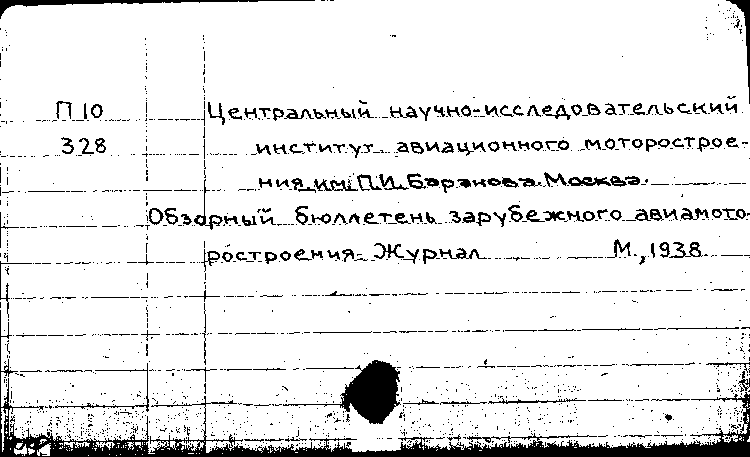 П10 Центральный научно-исследовательский
328 институт авиационного моторострое-
ния им. П.И. Баранова. Москва.
Обзорный бюллетень зарубежного авиамото-
ростроения. Журнал М., 1938